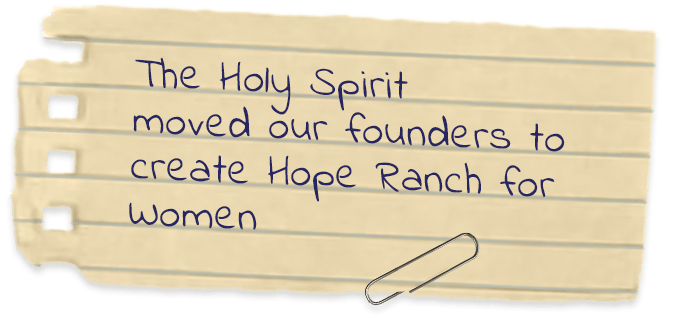 The Holy Spirit
moved our founders to
create Hope Ranch for
women